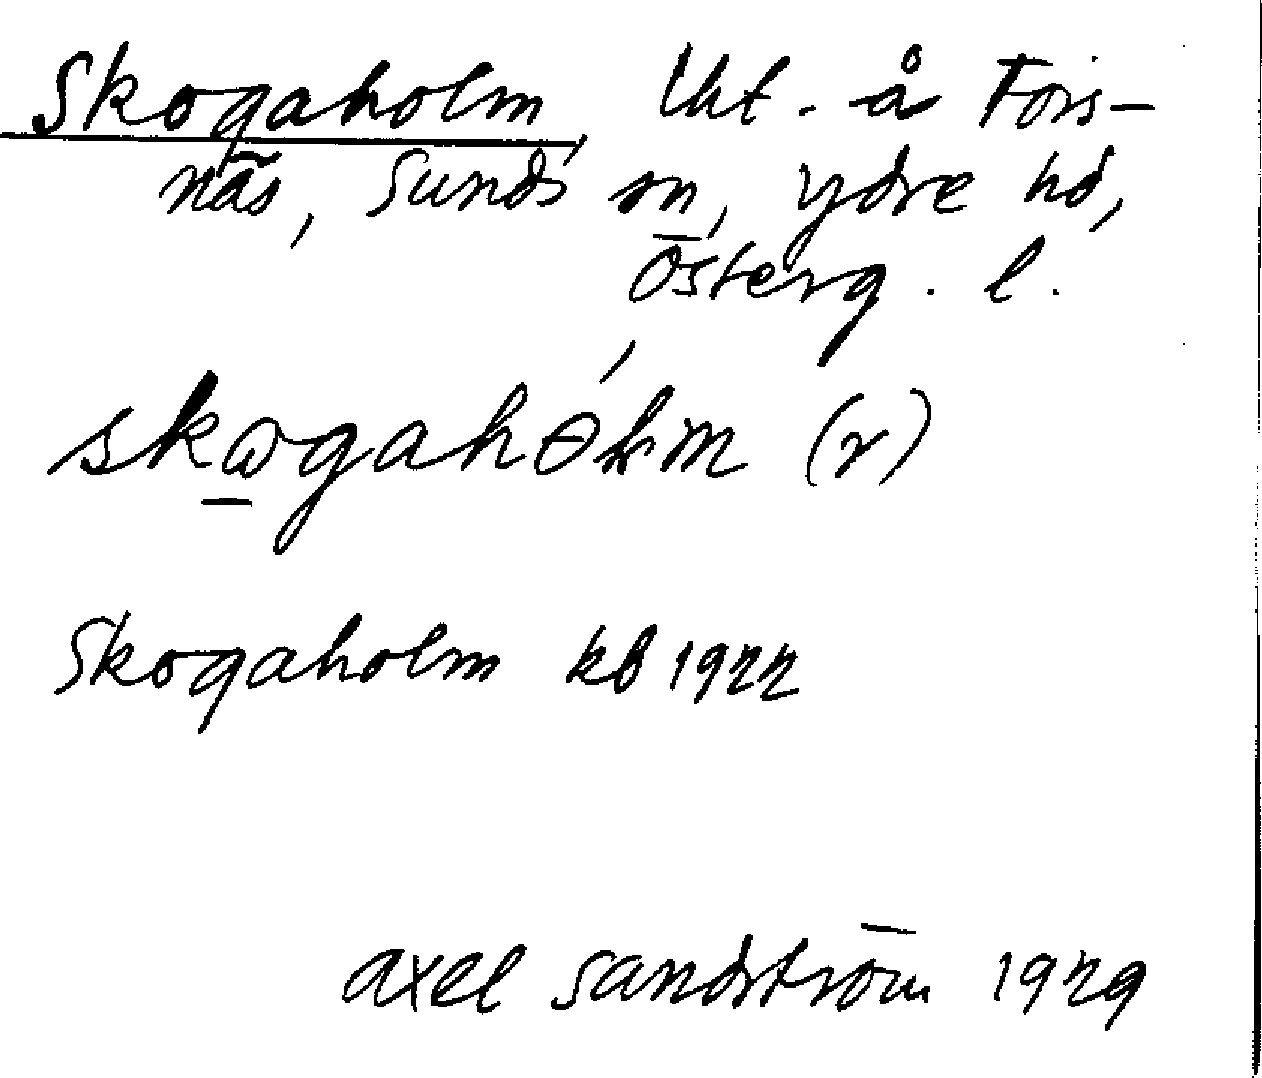 Skogaholm, Uht. å Fors-
näs, Sunds sn, Ydre hd,
Österg. l.
skɷgahɵ́lm (r)
Skogaholm kb 1922
Axel Sandström 1929